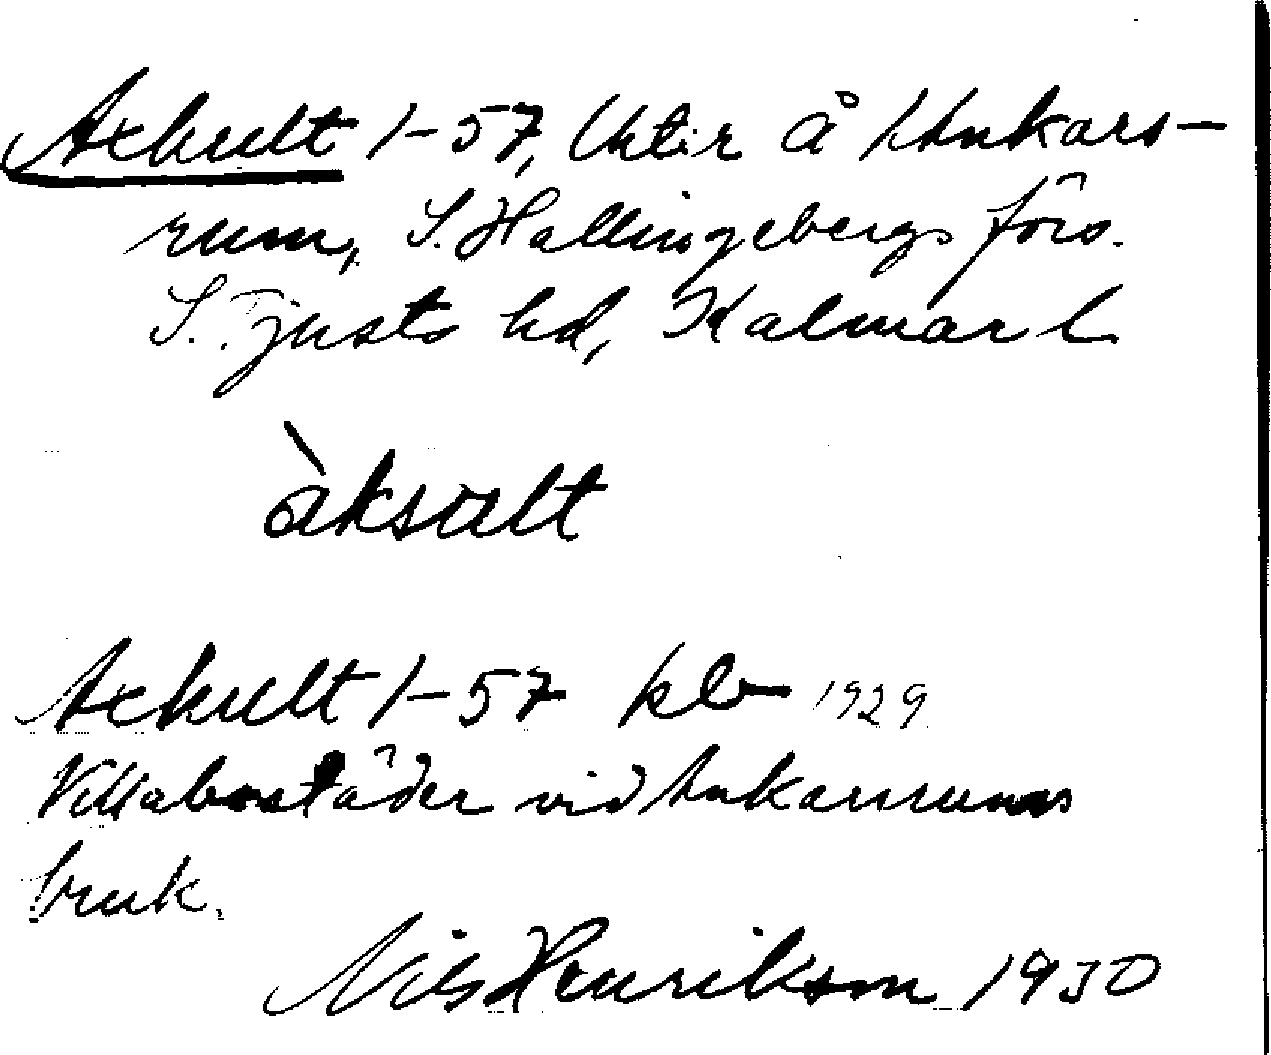 Axhult 1-57, Urtir å Ankars-
rum, S. Hallingebergs förs.
S. Tjusts hd, Kalmar l
àksult
Axhult 1-57 klv 1929
Villabostäder vid Ankarsrums
bruk.
Nils Henrikson 1930